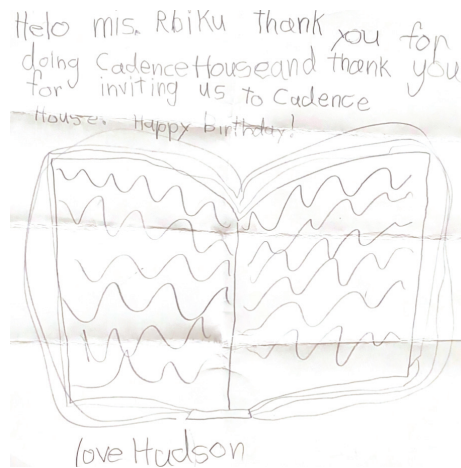 Helo mis. Rbiku thank you for
doing Cadence House and thank you
for inviting us to Cadence
House. Happy birthday!
love Hudson